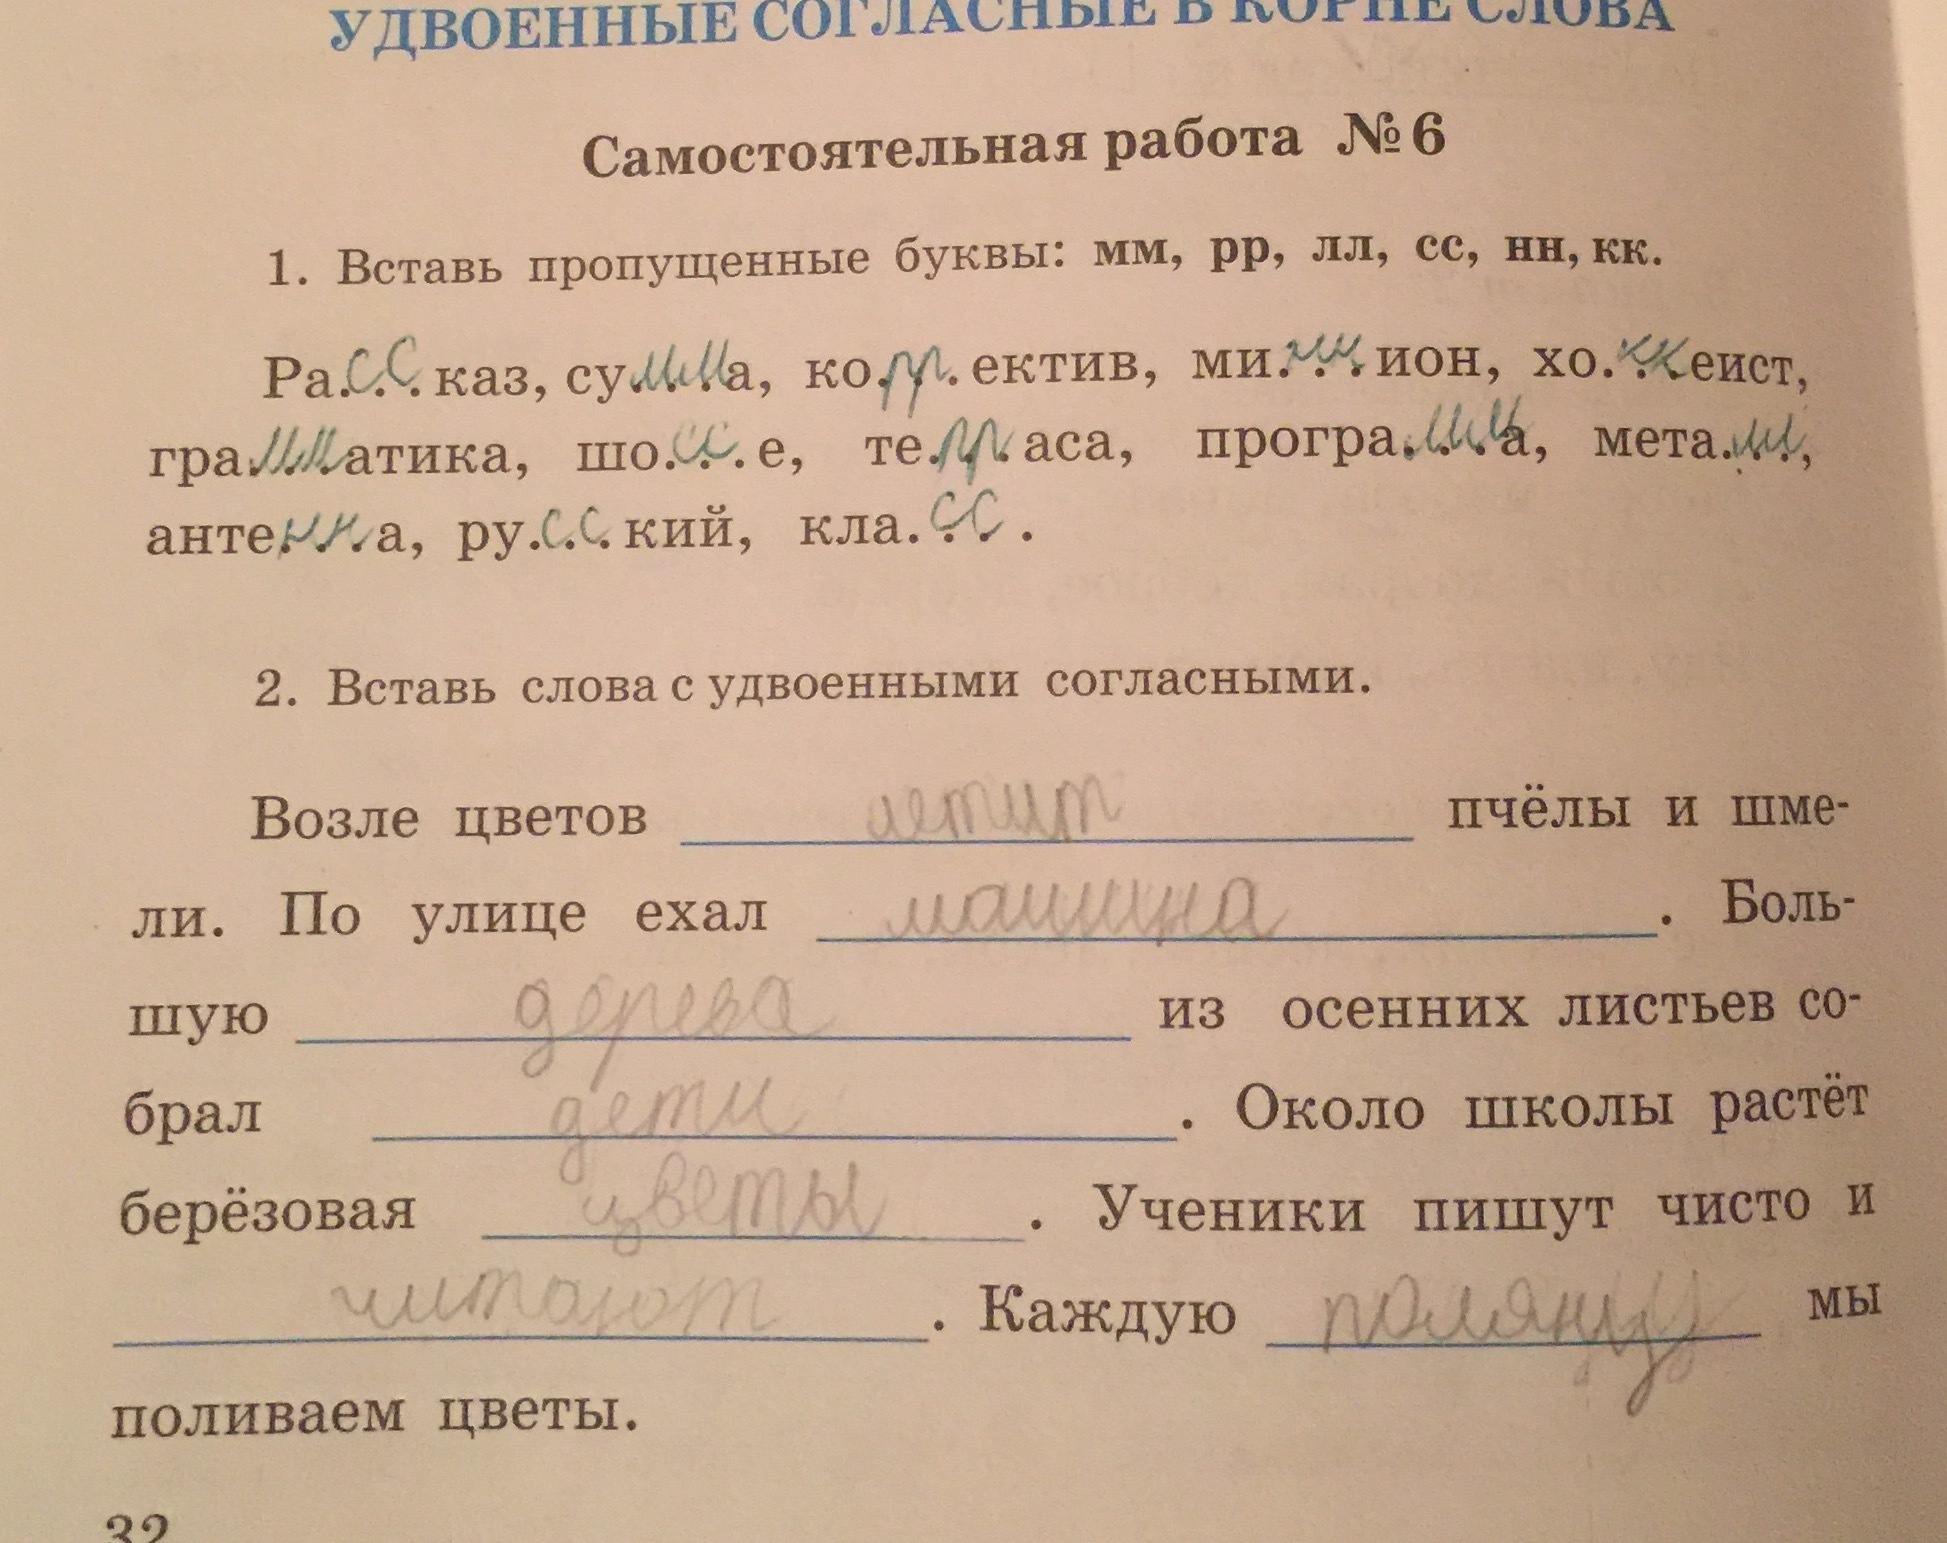 УДВОЕННЫЕ СОГЛАСНЫЕ В КОРНЕ СЛОВА
Самостоятельная работа №6
1. Вставь пропущенные буквы: мм, рр, лл, сс, нн, кк.
Ра.сс.каз, су.мм.а, ко.рр.ектив, ми...ион, хо.кк.еист,
гра.мм.атика, шо.сс.е, те.рр.аса, програ.мм.а, мета.лл.,
анте.нн.а, ру.сс.кий, кла.сс.
2. Вставь слова с удвоенными согласными.
Возле цветов летит пчёлы и шме-
ли. По улице ехал машина. Боль-
шую дерева из осенних листьев со-
брал дети. Около школы растёт
берёзовая цветы. Ученики пишут чисто и
читают. Каждую поляну мы
поливаем цветы.
32